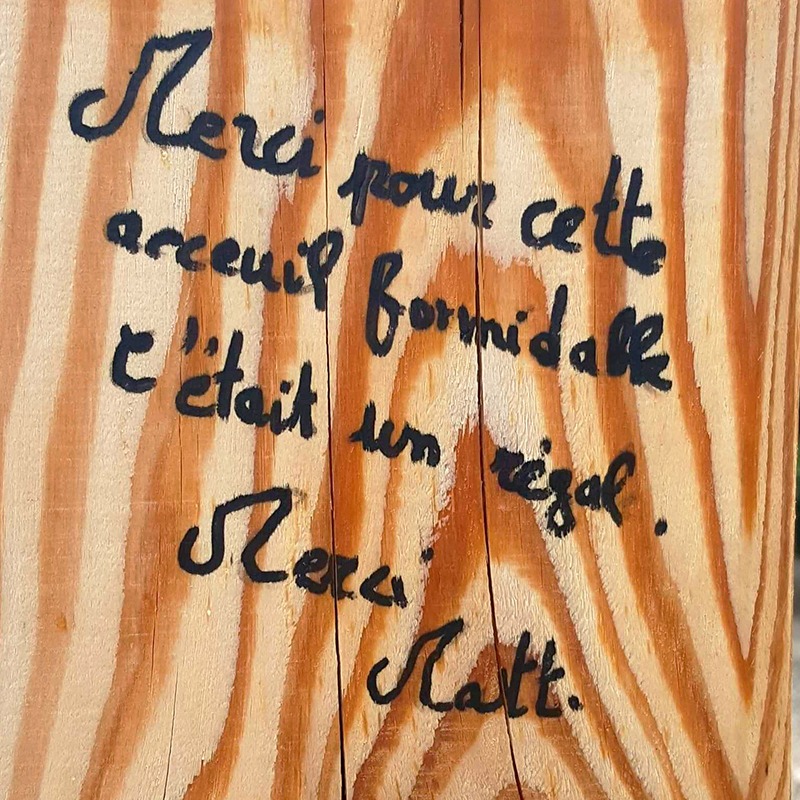 Merci pour cette
arceuil formidable
C'était un régal.
Merci
Matt.